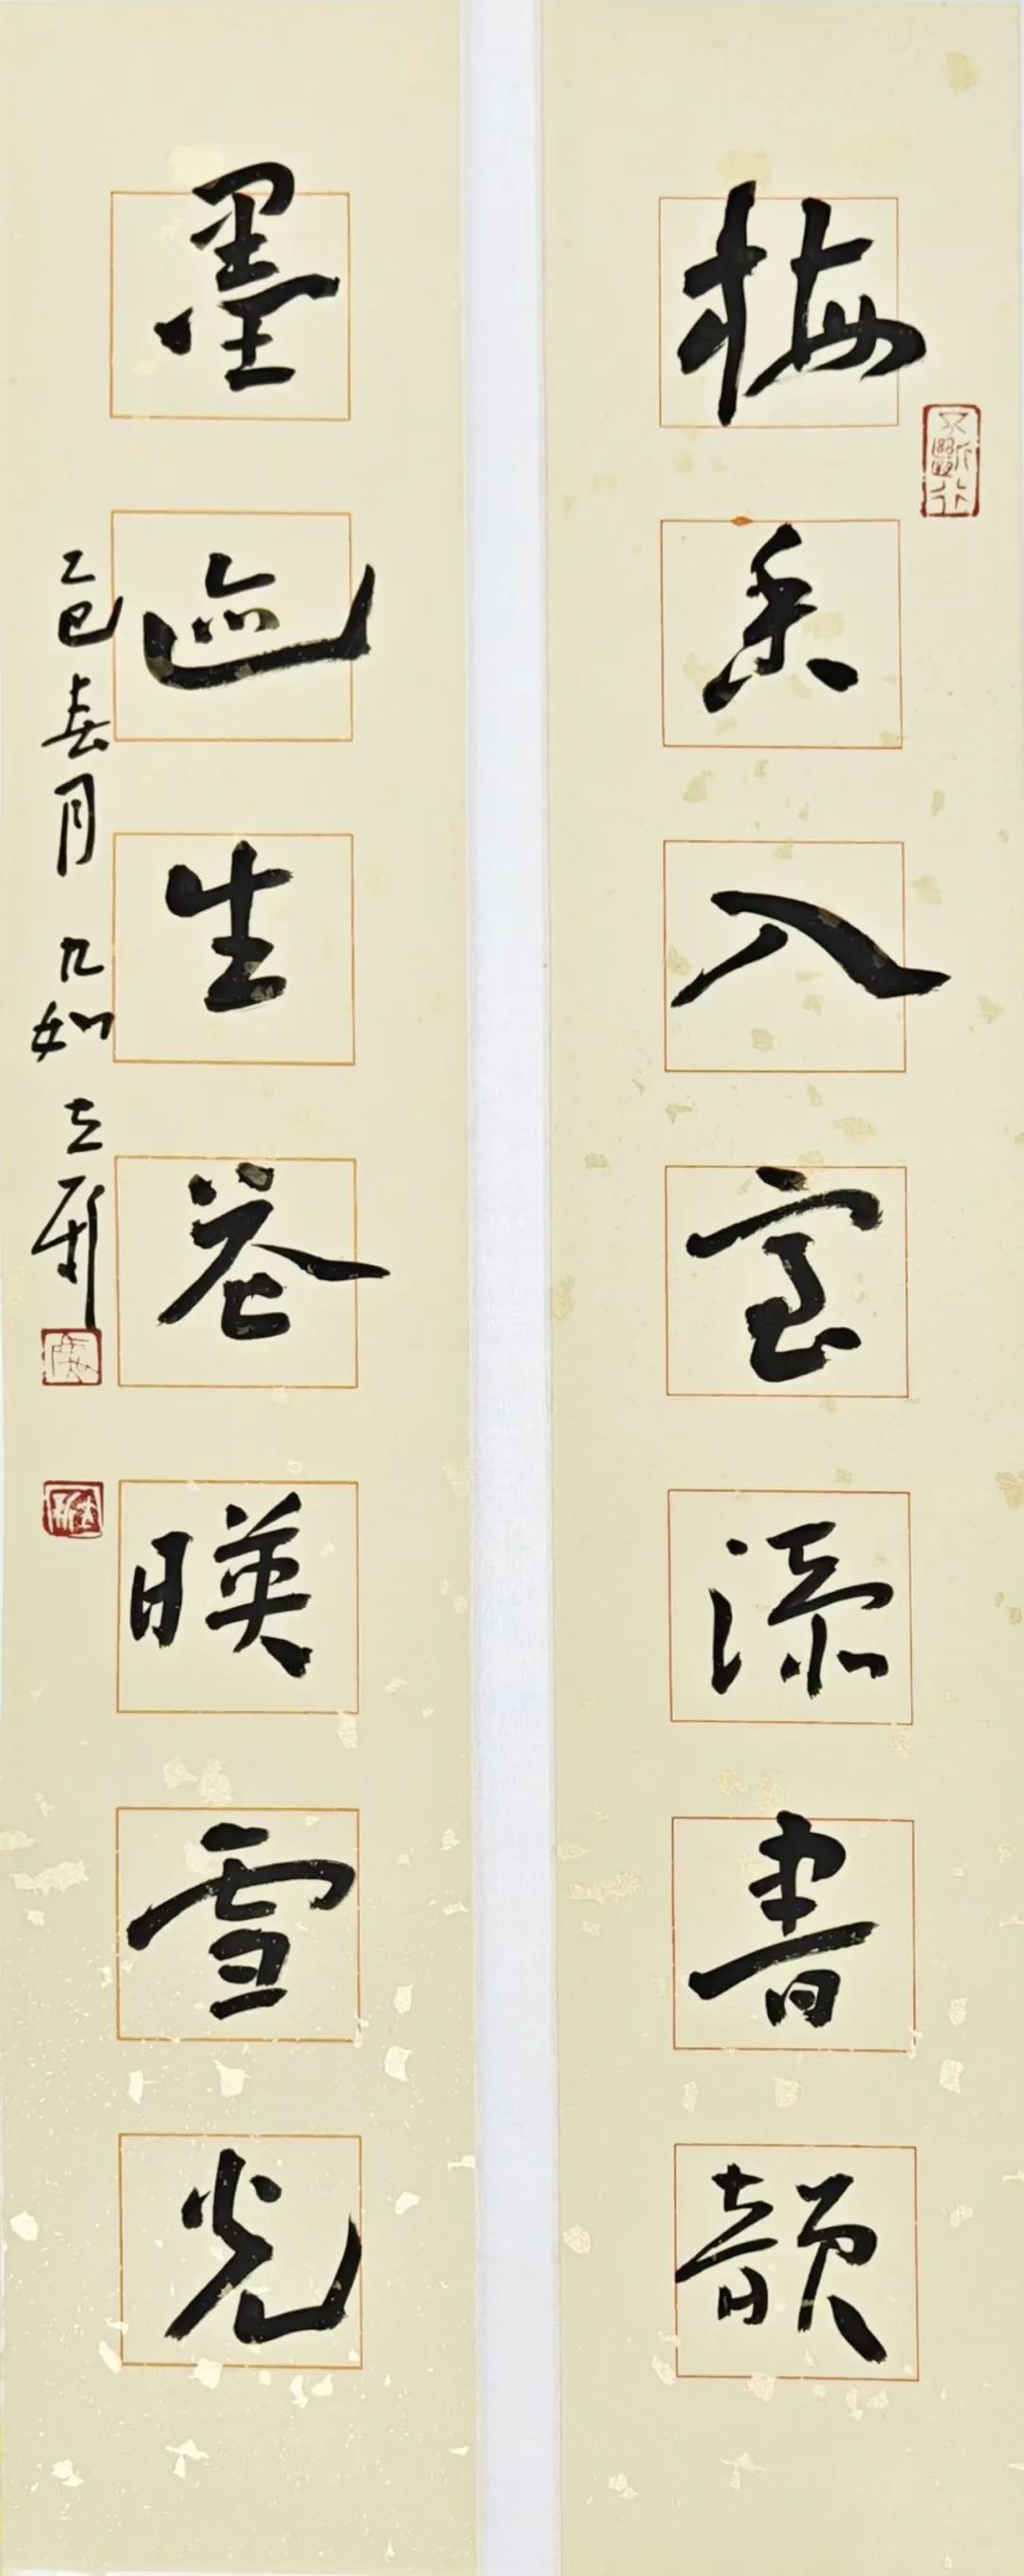 梅香入室添書韻
墨迹生花暎雪光
乙巳春月 九如